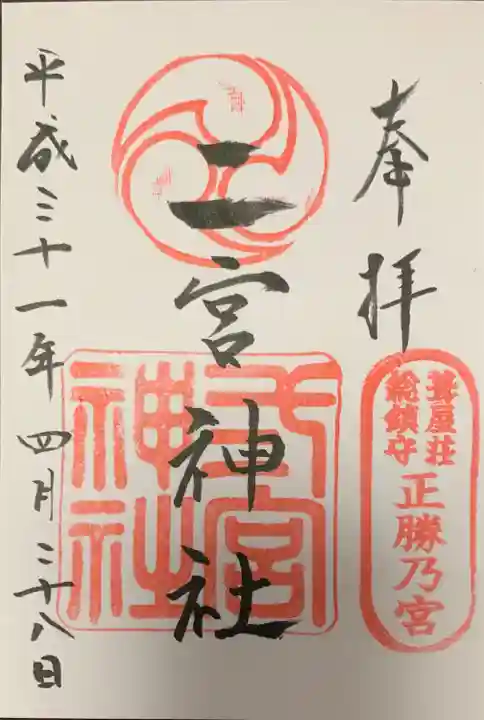 奉拝
葺屋荘
総鎮守
正勝乃宮
二宮神社
弍宮
神社
平成三十一年四月二十八日